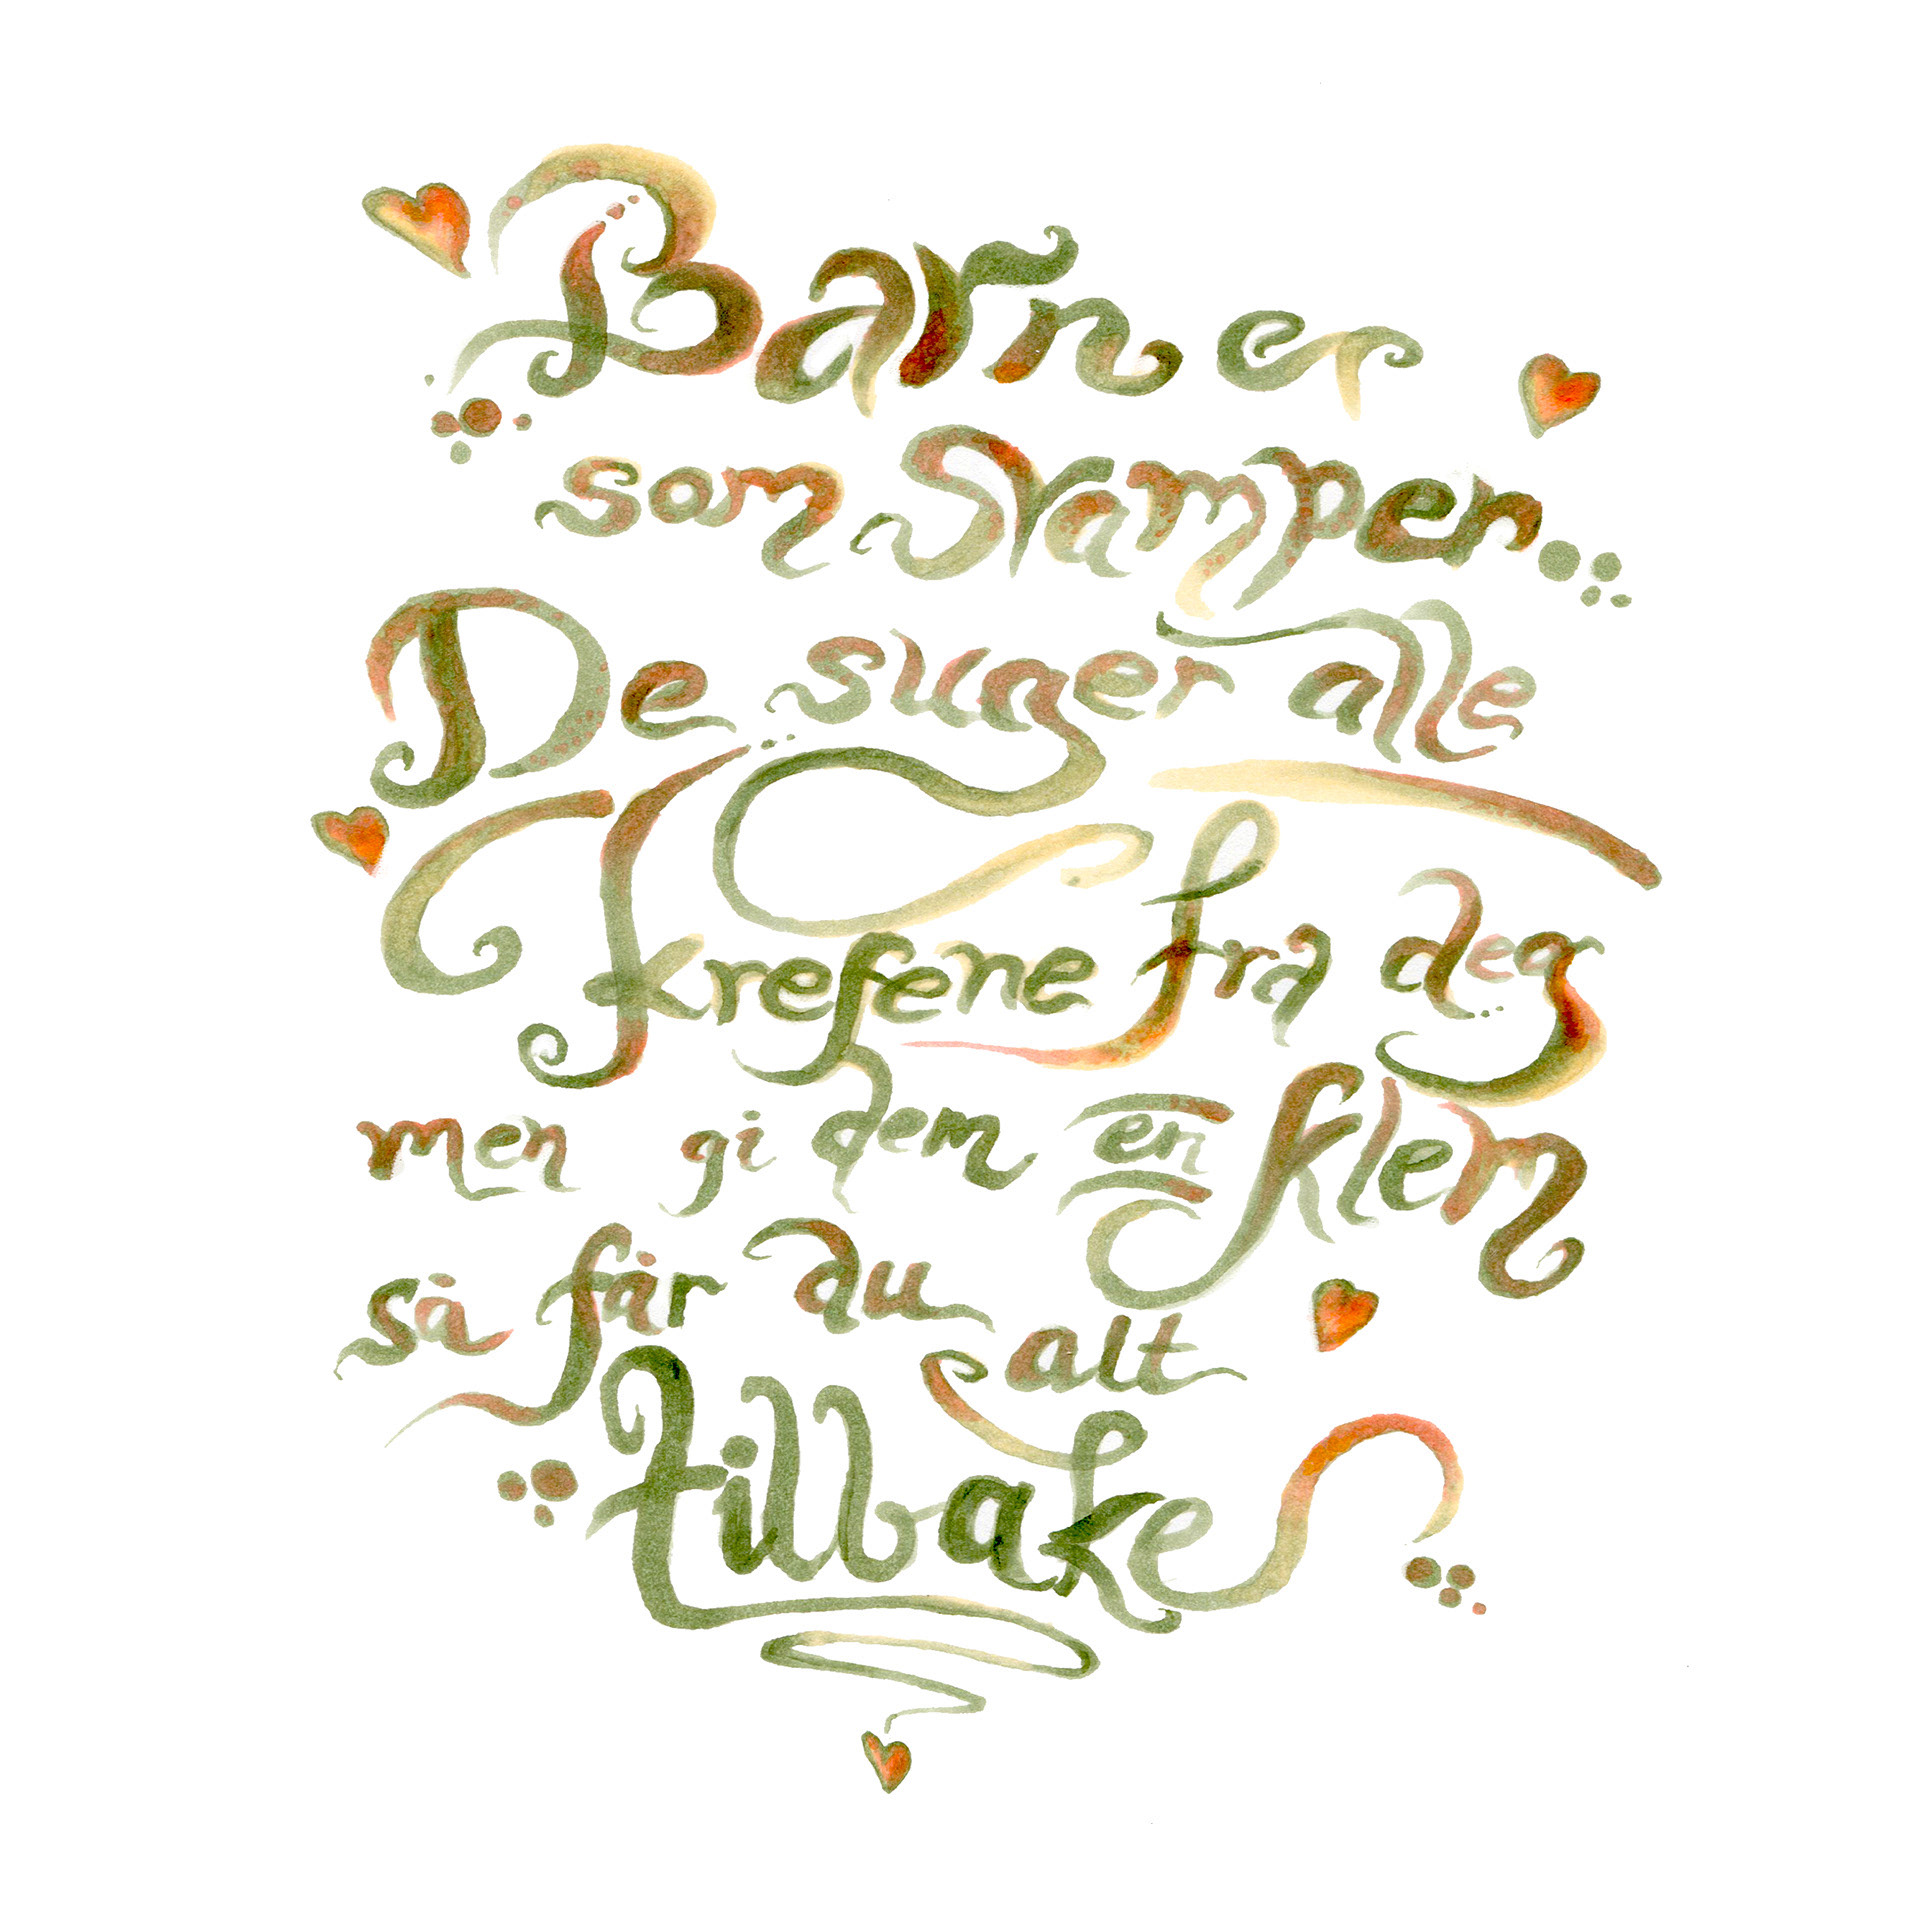 Barn er
som svamper
De suger alle
krefene fra deg
men gi dem en klem
så får du alt
tilbake